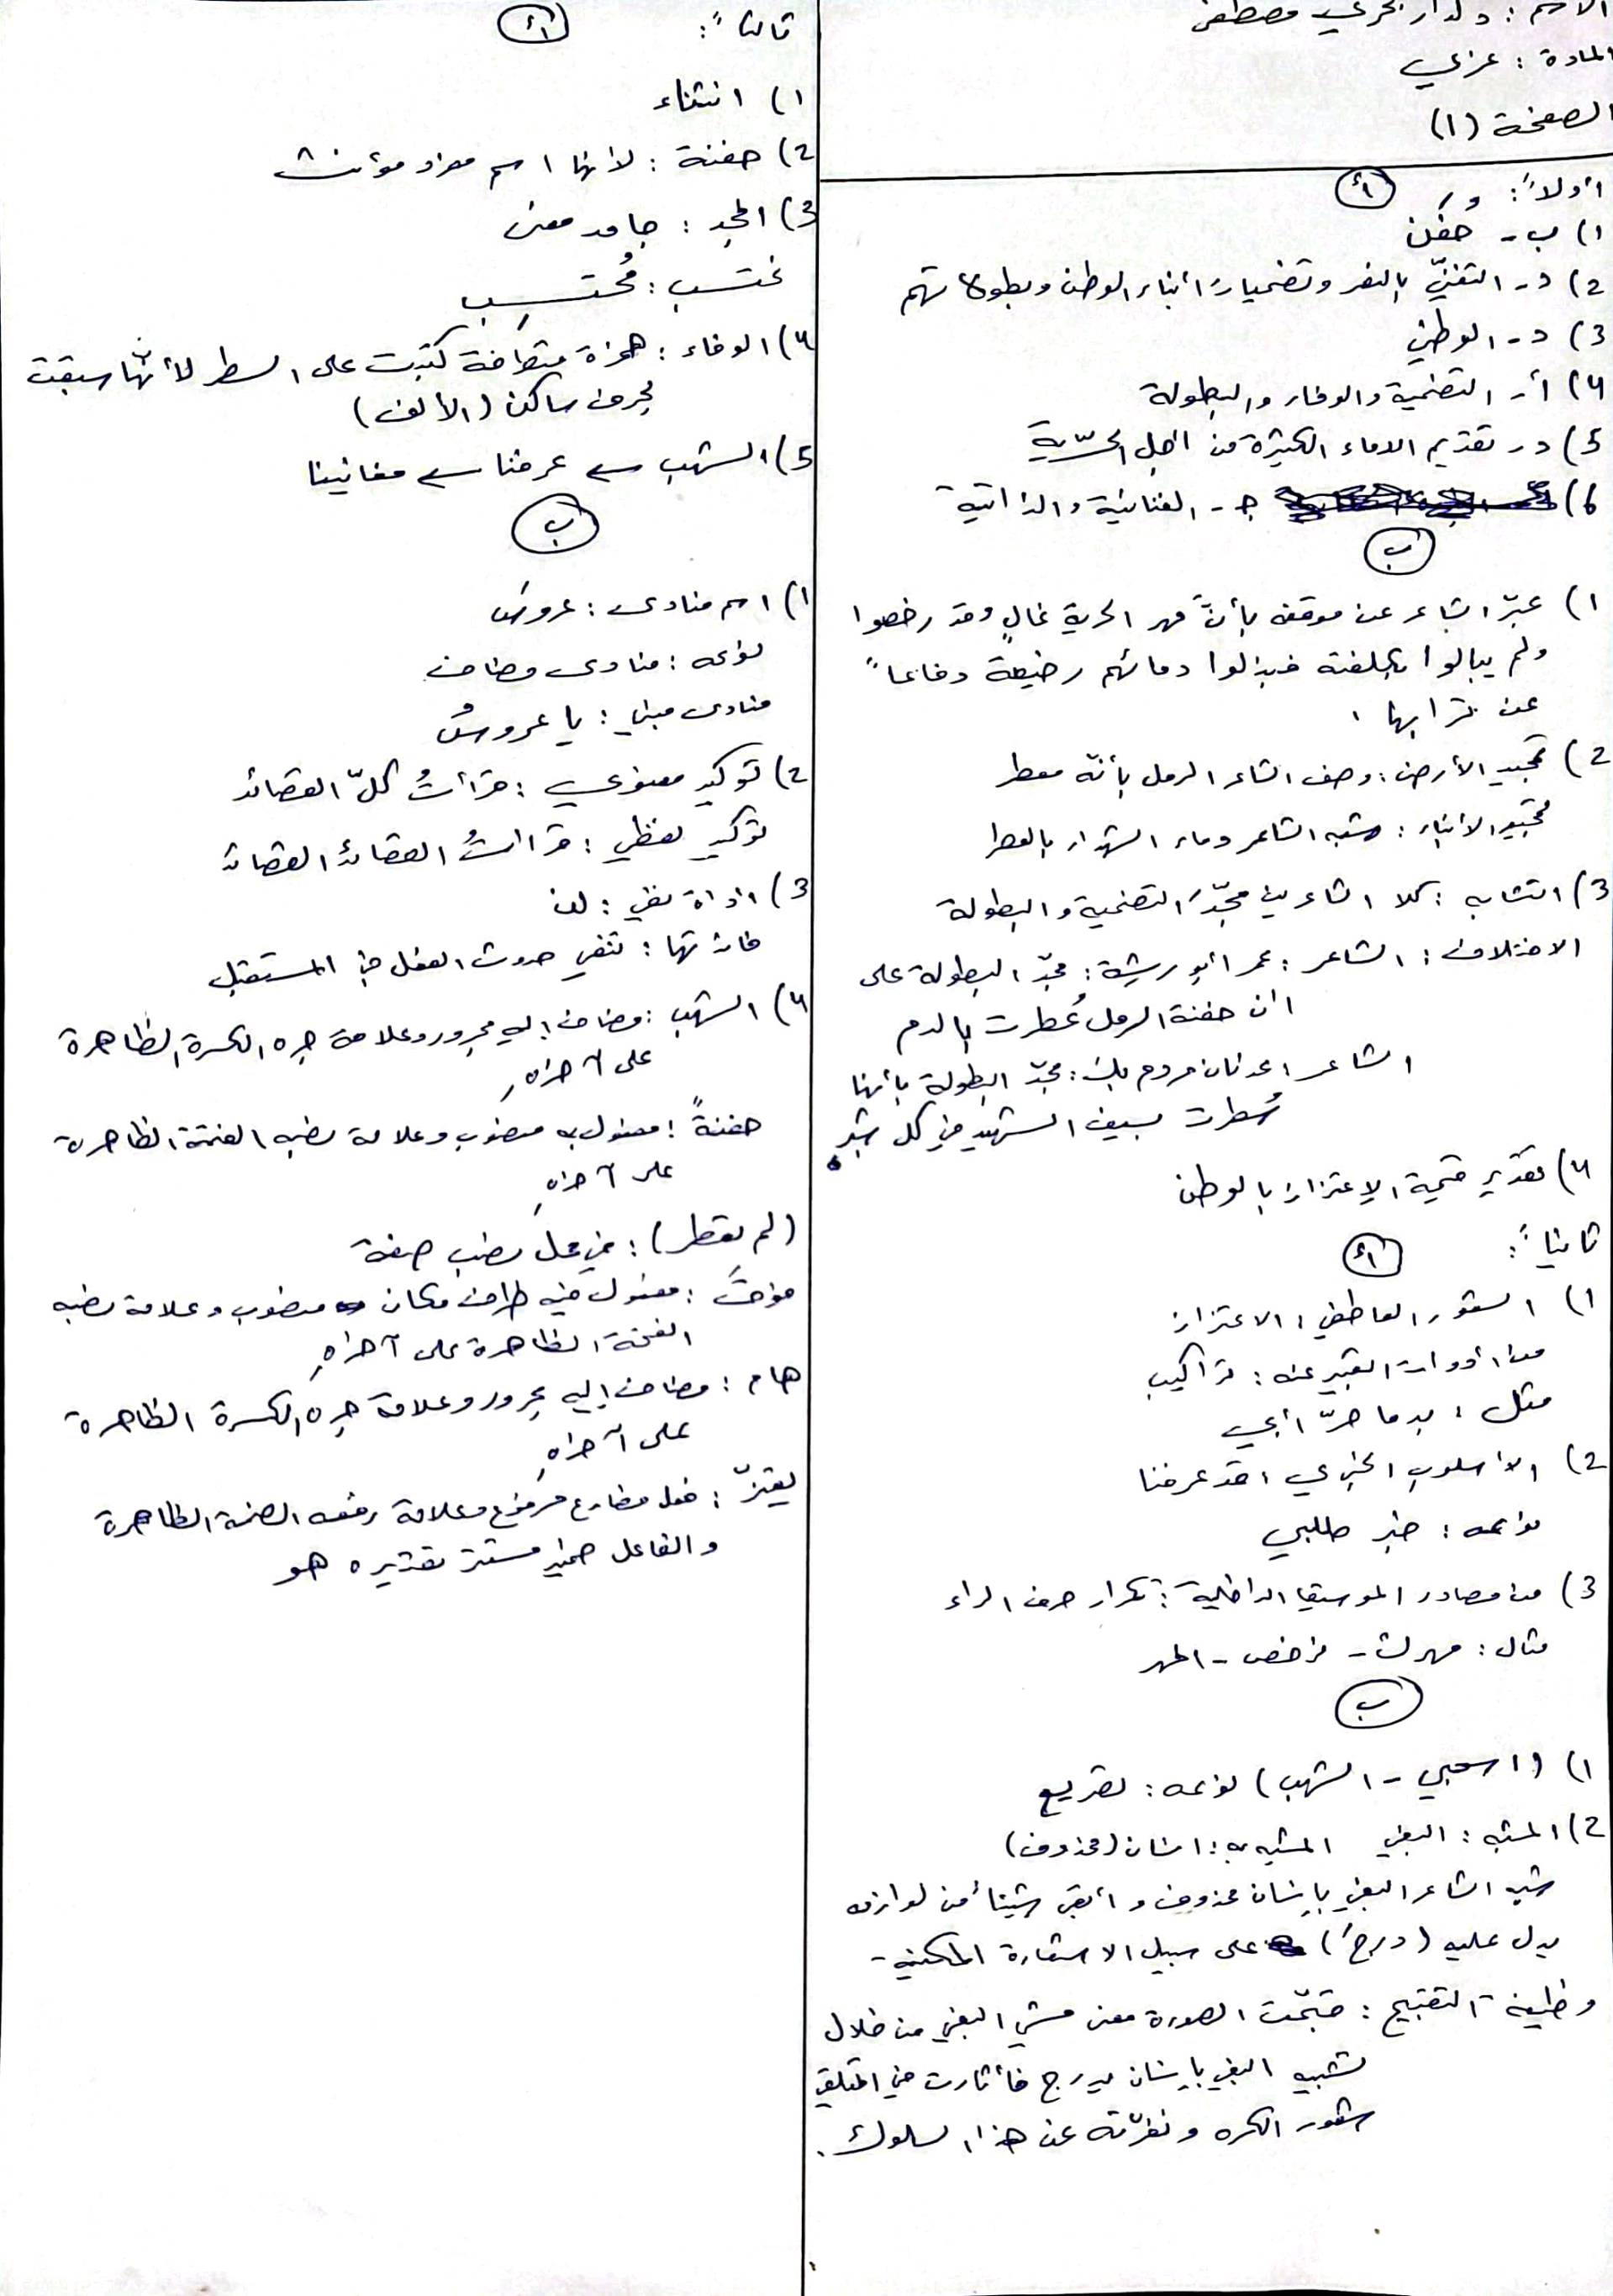 الاسم : دلدار بحري مصطفى
المادة : عربي
الصفحة (1)
أولاً: أ
1) ب - حُفَن
2) د- التغنيّ بالنصر وتضحيات أبناء الوطن وبطولاتهم
3) د- الوطني
4) أ- التضحية والوفاء والبطولة
5) د- تقديم الدماء الكثيرة من أجل الحرّية
6) ج - الغنائية والذاتية
ب
1) عبّر الشاعر عن موقفه بأنَّ مهر الحرية غالٍ وقد رخصوا
ولم يبالوا بالكلفة فبذلوا دمائهم رخيصة دفاعاً
عن ترابها .
2) تمجيد الأرض : وصف الشاعر الرمل بأنّه معطر
تمجيد الأبناء : شبه الشاعر دماء الشهداء بالعطر
3) التشابه : كلا الشاعرين مجّدَ التضحية والبطولة
الاختلاف : الشاعر : عمر أبو ريشة : مجّد البطولة على
ان حفنة الرمل عُطرت بالدم
الشاعر : عدنان مردم بك : مجّد البطولة بأنها
سُطرت بسيف الشهيد في كل شبر
4) تقدير قيمة الاعتزاز بالوطن
ثانياً : أ
1) الشعور العاطفي : الاعتزاز
من أدوات التعبير عنه : تراكيب
مثل : بدما حرّ أبي
2) الاسلوب الخبري : قد عرفنا
نوعه : خبر طلبي
3) من مصادر الموسيقا الداخلية : تكرار حرف الراء
مثال : مهرك - نرخص - المهر
ب
1) (اسحبي - الشهب) نوعه : تصريع
2) المشبه : البغي المشبه به : انسان (محذوف)
شبه الشاعر البغي بإنسان محذوف وأبقى شيئاً من لوازمه
يدل عليه (درجَ) على سبيل الاستعارة المكنية
وظيفة التقبيح : قبّحت الصورة معنى مشي البغي من خلال
تشبيه البغي بإنسان يدرج فأثارت في المتلقي
شعور الكره ونفرّته عن هذا السلوك .
ثالثاً: أ
1) انتشاء
2) حفنة : لانها اسم مفرد مؤنث
3) المجد : جامد معنى
نحتسب : مُحتسِب
4) الوفاء : همزة متطرفة كتبت على السطر لأنّها سبقت
بحرف ساكن (الألف)
5) الشهب ← عرفنا ← مغانينا
ب
1) اسم منادى : عروسَ
نوعه : منادى مضاف
منادى مبني : يا عروسُ
2) توكيد معنوي : قرأتُ كلّ القصائد
توكيد لفظي : قرأتُ القصائد القصائد
3) اداة نفي : لن
فائدتها : تنفي حدوث الفعل في المستقبل
4) الشهب : مضاف إليه مجرور وعلامة جره الكسرة الظاهرة
على آخره
حفنةً : مفعول به منصوب وعلامة نصبه الفتحة الظاهرة
على آخره
(لم تعطر) : في محل نصب صفة
فوقَ : مفعول فيه ظرف مكان منصوب وعلامة نصبه
الفتحة الظاهرة على آخره
هام : مضاف إليه مجرور وعلامة جره الكسرة الظاهرة
على آخره
يعتزّ : فعل مضارع مرفوع وعلامة رفعه الضمة الظاهرة
والفاعل ضمير مستتر تقديره هو